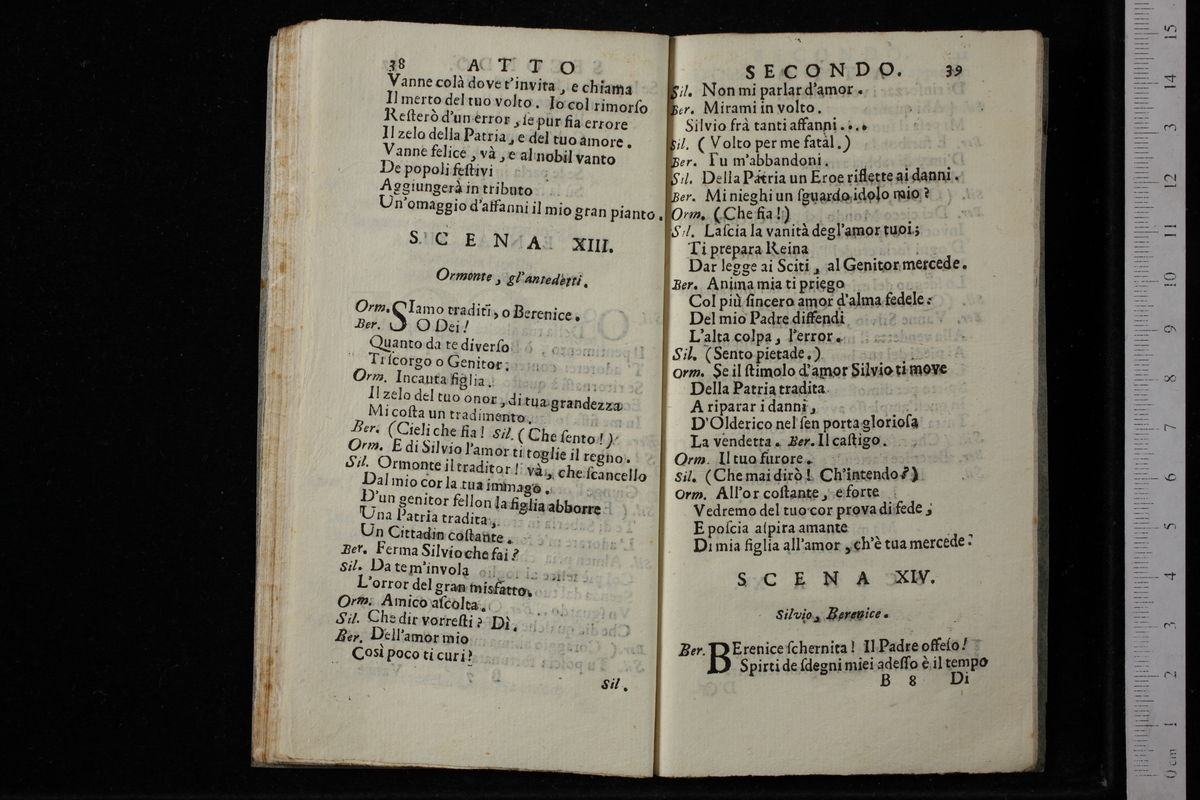 38 ATTO
Vanne colà dove t'invita, e chiama
Il merto del tuo volto. Io col rimorſo
Reſterò d'un error, ſe pur ſia errore
Il zelo della Patria, e del tuo amore.
Vanne felice, và, e al nobil vanto
De popoli feſtivi
Aggiungerà in tributo
Un'omaggio d'affanni il mio gran pianto.
SCENA XIII.
Ormonte, gl'antedetti.
Orm. SIamo traditi, o Berenice.
Ber. O Dei!
Quanto da te diverſo
Ti ſcorgo o Genitor.
Orm. Incauta figlia.
Il zelo del tuo onor, di tua grandezza
Mi coſta un tradimento.
Ber. (Cieli che fia! Sil. (Che ſento!)
Orm. E di Silvio l'amor ti toglie il regno.
Sil. Ormonte il traditor! và, che ſcancello
Dal mio cor la tua immago.
D'un genitor fellon la figlia abborre
Una Patria tradita,
Un Cittadin coſtante.
Ber. Ferma Silvio che fai?
Sil. Da te m'invola
L'orror del gran misfatto.
Orm. Amico aſcolta.
Sil. Che dir vorreſti? Dì.
Ber. Dell'amor mio
Così poco ti curi?
Sil.
SECONDO. 39
Sil. Non mi parlar d'amor.
Ber. Mirami in volto.
Silvio frà tanti affanni....
Sil. (Volto per me fatàl.)
Ber. Tu m'abbandoni.
Sil. Della Patria un Eroe riflette ai danni.
Ber. Mi nieghi un ſguardo idolo mio?
Orm. (Che fia!)
Sil. Laſcia la vanità degl'amor tuoi;
Ti prepara Reina
Dar legge ai Sciti, al Genitor mercede.
Ber. Anima mia ti priego
Col più ſincero amor d'alma fedele:
Del mio Padre diffendi
L'alta colpa, l'error.
Sil. (Sento pietade.)
Orm. Se il ſtimolo d'amor Silvio ti move
Della Patria tradita
A riparar i danni,
D'Olderico nel ſen porta glorioſa
La vendetta. Ber. Il caſtigo.
Orm. Il tuo furore.
Sil. (Che mai dirò! Ch'intendo?)
Orm. All'or coſtante, e forte
Vedremo del tuo cor prova di fede;
E poſcia aſpira amante
Di mia figlia all'amor, ch'è tua mercede.
SCENA XIV.
Silvio, Berenice.
Ber. BErenice ſchernita! Il Padre offeſo!
Spirti de ſdegni miei adeſſo è il tempo
B 8 Di